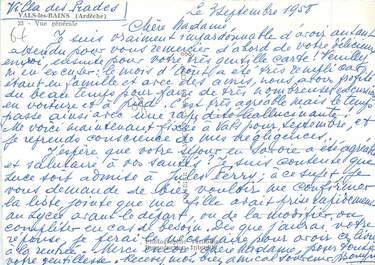 Villa des Prades
VALS-les-BAINS (Ardèche)
22 - Vue générale
Le 3 septembre 1958
Chère Madame,
Je suis vraiment impardonnable d'avoir autant
attendu pour vous remercier d'abord de votre délicieux
envoi, ensuite pour votre très gentille carte! Veuillez
m'en excuser: le mois d'août a été très rempli
en famille et avec des amis, nous avons profité
du beau temps pour faire de très nombreuses excursions
en voiture et à pied. C'est très agréable mais le temps
passe ainsi avec une rapidité hallucinante!
Me voici maintenant fixée à Vals pour septembre, et
je reprends conscience de mes négligences.
J'espère que votre séjour en Savoie a été agréable
et salutaire à vos santés! Je suis contente que
Luce soit admise à Jules Ferry; à ce sujet je
vous demande de bien vouloir me confirmer
la liste jointe que ma fille avait prise rapidement
au lycée avant le départ, ou de la modifier, ou
compléter en cas de besoin. Dès que j'aurai votre
réponse, je ferai le nécessaire pour avoir ces livres
à la rentrée. Merci chère Madame, pour toute
votre gentillesse. Recevez mon bien amical souvenir